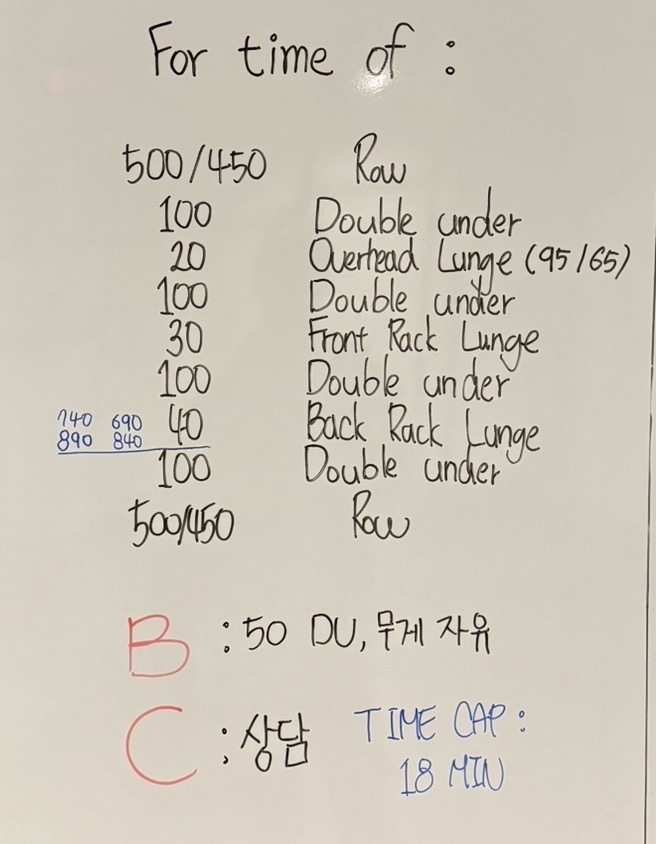 For time of :
500/450 Row
100 Double under
20 Overhead Lunge (95/65)
100 Double under
30 Front Rack Lunge
100 Double under
740 690
890 840
40 Back Rack Lunge
100 Double under
500/450 Row
B : 50 DU, 무게 자유
C : 상담
TIME CAP :
18 MIN